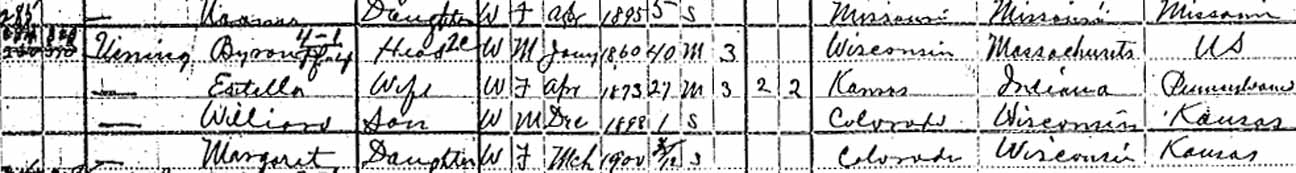 Daughter W F Apr 1895 5 S Missouri Missouri Missouri
Byron Head W M Jany 1860 40 M 3 Wisconsin Massachusetts US
— Estella Wife W F Apr 1873 27 M 3 2 2 Kansas Indiana Pennsylvania
— William Son W M Dec 1898 1 S Colorado Wisconsin Kansas
— Margaret Daughter W F Mch 1900 /12 S Colorado Wisconsin Kansas